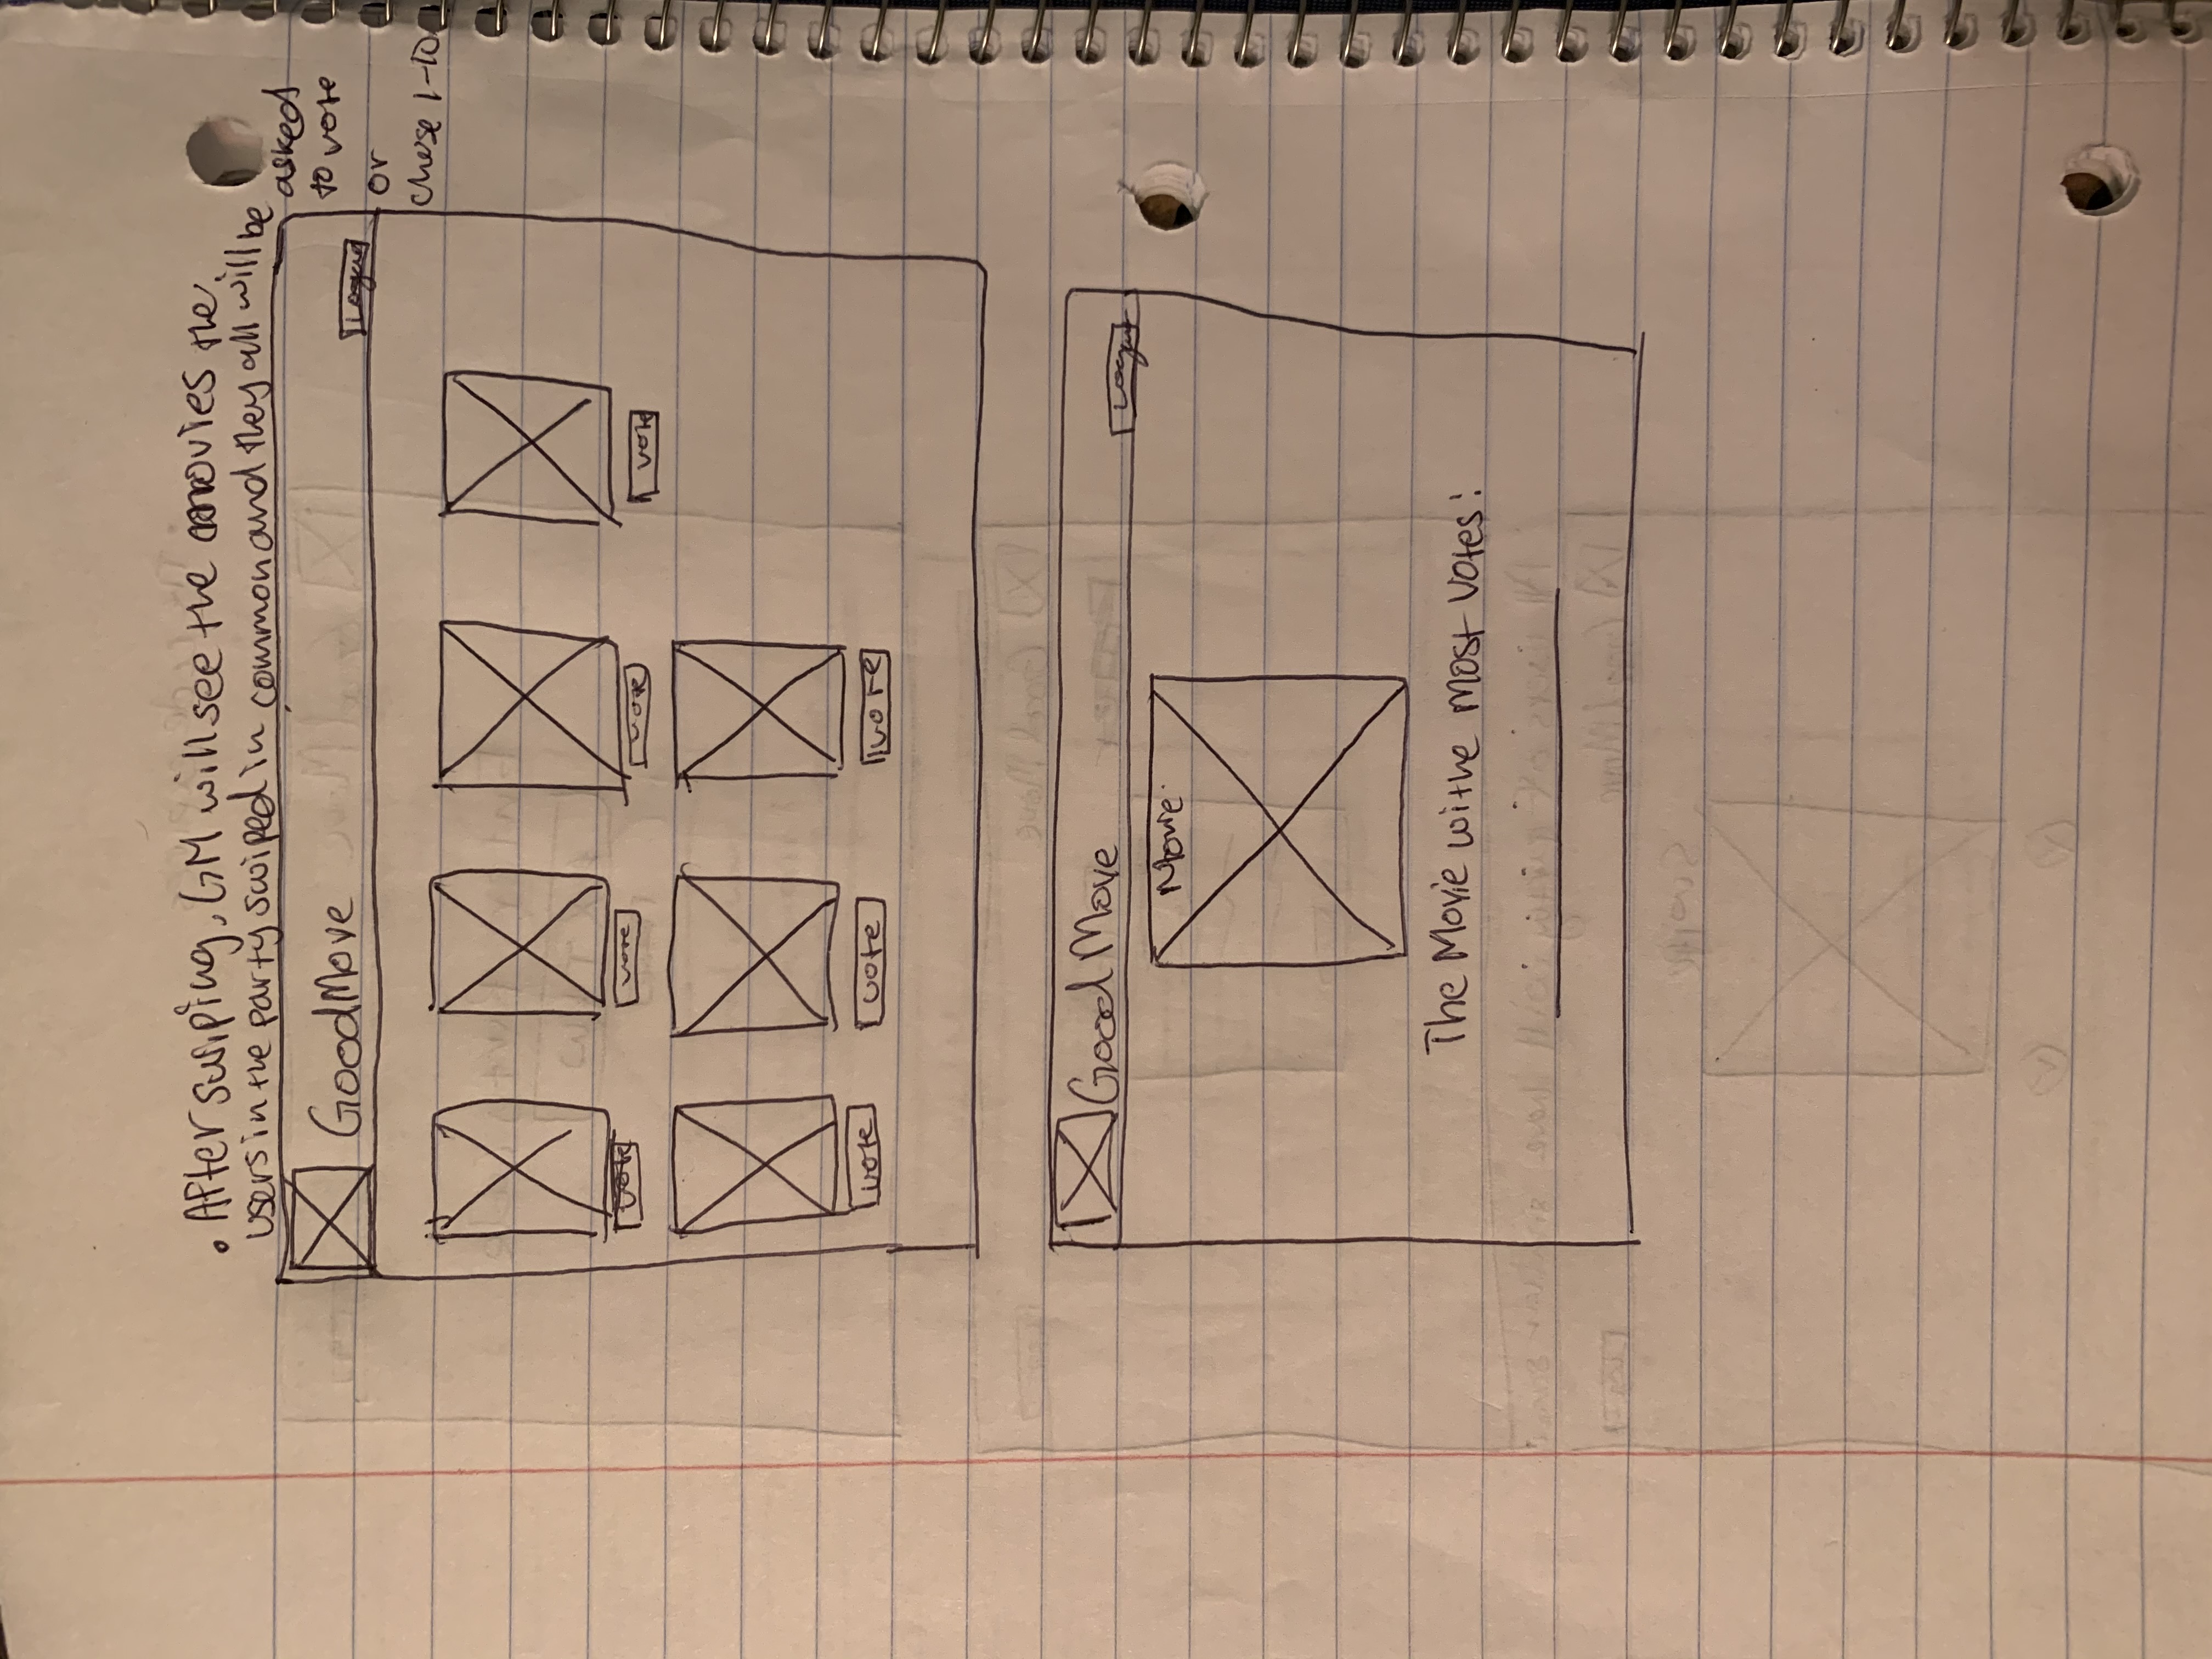 . After swiping, GM will see the movies the
users in the party swiped in common and they all will be
asked
to vote
or
chose 1-10
GoodMove
Logout
vote vote vote vote
vote vote vote
Good Move
Logout
Movie
The Movie withe most votes: